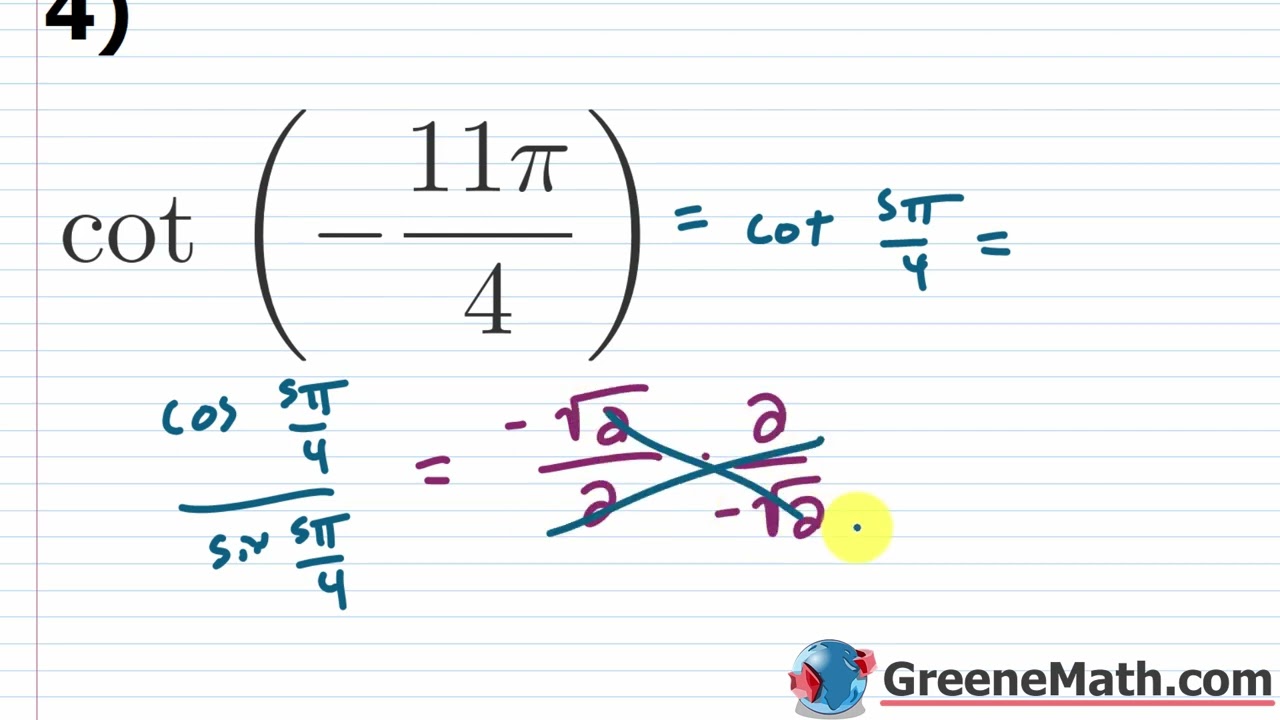 4)
cot (−11π/4) = cot 5π/4 =
cos 5π/4 / sin 5π/4 = -√2/2 · 2/-√2
GreeneMath.com